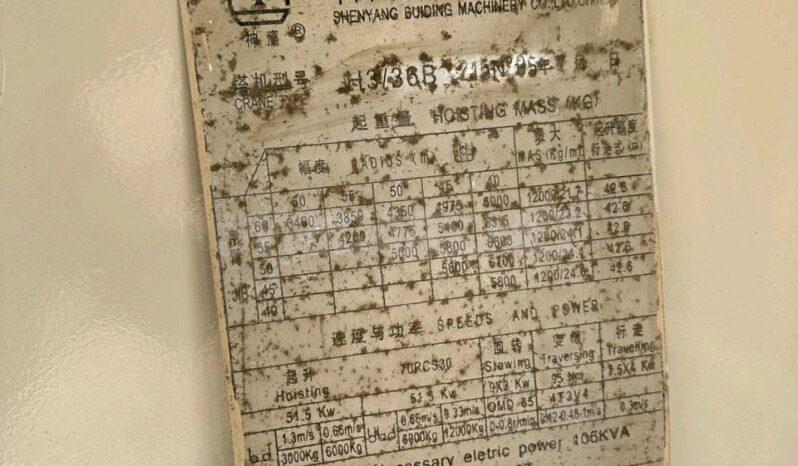 SHENYANG BUIDING MACHINERY CO.,LTD.
神鹰®
塔机型号 H3/36B 215N 95年 月 日
CRANE TYPE
起重量 HOISTING MASS (KG)
幅度 RADIOS (m) 最大 起升高度
MAS(Kg/m) 行走式 (m)
60 55 50 45 40
60 3400 3850 4350 4975 6000 1200/21.7 42.6
55 4200 4775 5400 1200/23.2 42.6
50 5000 5800 6600 1200/24.1 42.6
45 6700 42.6
40 5800 42.6
速度与功率 SPEEDS AND POWER
起升 70RCS30 回转 变幅 行走
Hoisting Slewing Traversing Travelling
51.5 Kw 51.5 Kw 9X2 Kw 7.5X4 Kw
1.3m/s 0.66m/s 0.66m/s 0.33m/s OMD 85 4T3V4
3000Kg 6000Kg 6000Kg 12000Kg 0-0.8r/min 0.3m/s
eletric power 105KVA